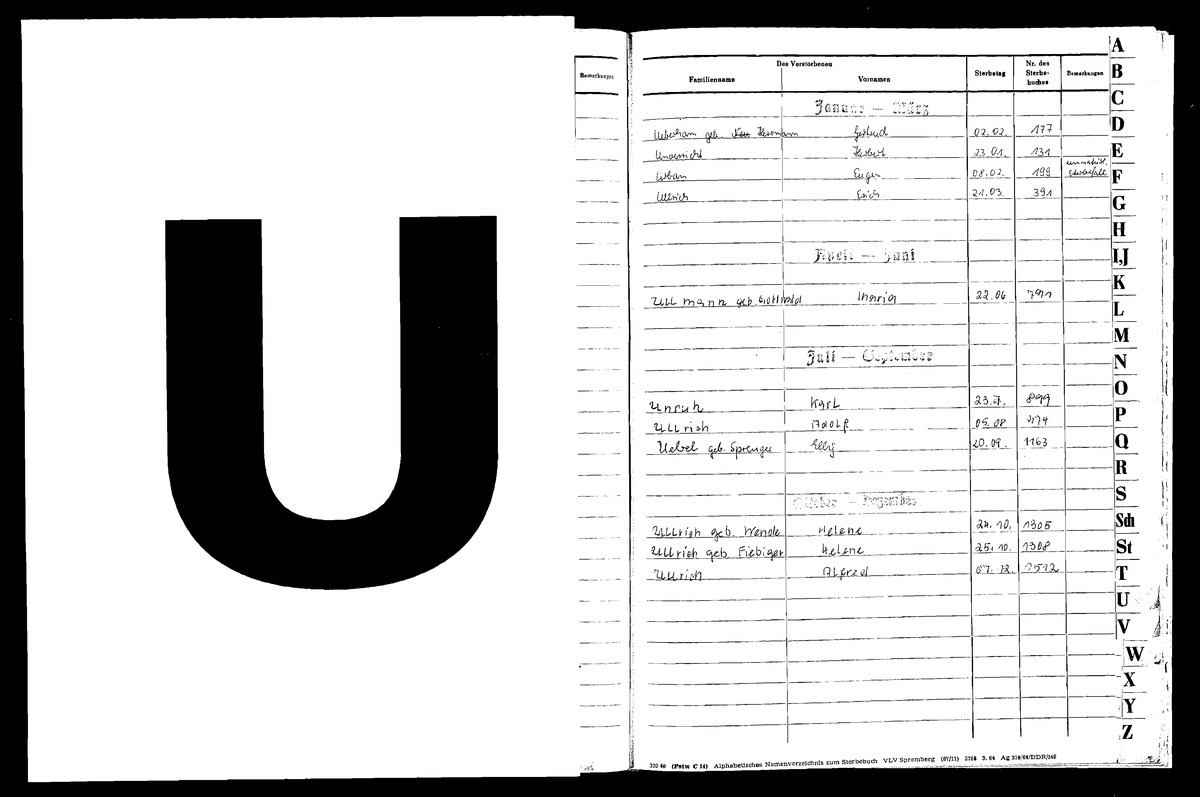 U
Bemerkungen
Des Verstorbenen
Familienname Vornamen Sterbetag Nr. des Sterbe-buches Bemerkungen
Januar — März
geb. Herrmann Gertrud 02.02. 177
Herbert 23.01. 131
Urban Eugen 08.02. 199
Ullrich Erich 21.03. 391
April — Juni
Ullmann geb. Gottwald Maria 22.06 791
Juli — September
Unruh Karl 23.7. 899
Ullrich Adolf 05.08 974
Uebel geb. Sprenger Elly 20.09. 1163
Oktober — Dezember
Ullrich geb. Wende Helene 24.10. 1305
Ullrich geb. Fiebiger Helene 25.10. 1308
Ullrich Alfred 07.12. 1512
A
B
C
D
E
F
G
H
I,J
K
L
M
N
O
P
Q
R
S
Sch
St
T
U
V
W
X
Y
Z
Alphabetisches Namenverzeichnis zum Sterbebuch VLV Spremberg